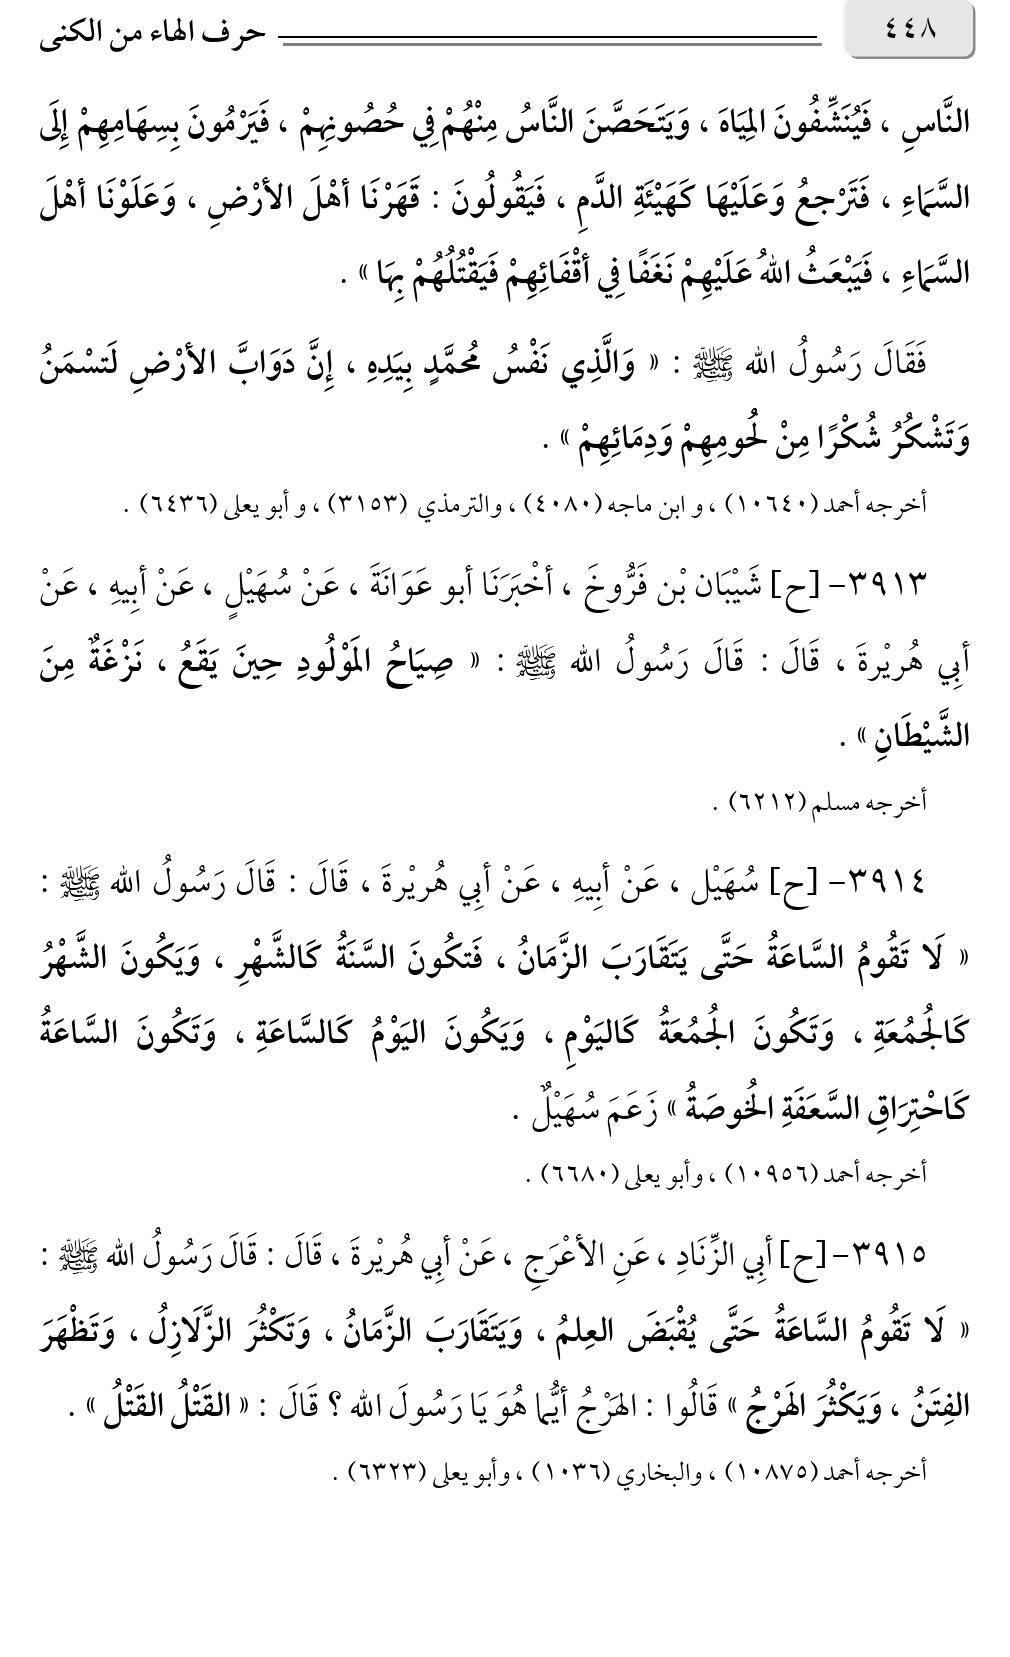 ٤٤٨
حرف الهاء من الكنى
النَّاسِ ، فَيُنَشِّفُونَ المِيَاهَ ، وَيَتَحَصَّنَ النَّاسُ مِنْهُمْ فِي حُصُونِهِمْ ، فَيَرْمُونَ بِسِهَامِهِمْ إِلَى
السَّمَاءِ ، فَتَرْجعُ وَعَلَيْهَا كَهَيْئَةِ الدَّمِ ، فَيَقُولُونَ : قَهَرْنَا أهْلَ الأرْضِ ، وَعَلَوْنَا أهْلَ
السَّمَاءِ ، فَيَبْعَثُ اللهُ عَلَيْهِمْ نَغَفًا فِي أقْفَائِهِمْ فَيَقْتُلُهُمْ بِهَا » .
فَقَالَ رَسُولُ الله ﷺ : « وَالَّذِي نَفْسُ مُحمَّدٍ بِيَدِهِ ، إِنَّ دَوَابَّ الأرْضِ لَتسْمَنُ
وَتَشْكُرُ شُكْرًا مِنْ لُحُومِهِمْ وَدِمَائِهِمْ » .
أخرجه أحمد (١٠٦٤٠) ، و ابن ماجه (٤٠٨٠) ، والترمذي (٣١٥٣) ، و أبو يعلى (٦٤٣٦) .
٣٩١٣- [ح] شَيْبَان بْن فَرُّوخَ ، أخْبَرَنَا أبو عَوَانَةَ ، عَنْ سُهَيْلٍ ، عَنْ أبِيهِ ، عَنْ
أبِي هُريْرةَ ، قَالَ : قَالَ رَسُولُ الله ﷺ : « صِيَاحُ المَوْلُودِ حِينَ يَقَعُ ، نَزْغَةٌ مِنَ
الشَّيْطَانِ » .
أخرجه مسلم (٦٢١٢) .
٣٩١٤- [ح] سُهَيْل ، عَنْ أبِيهِ ، عَنْ أبِي هُريْرةَ ، قَالَ : قَالَ رَسُولُ الله ﷺ :
« لَا تَقُومُ السَّاعَةُ حَتَّى يَتَقَارَبَ الزَّمَانُ ، فَتكُونَ السَّنَةُ كَالشَّهْرِ ، وَيَكُونَ الشَّهْرُ
كَالجُمُعَةِ ، وَتَكُونَ الجُمُعَةُ كَاليَوْمِ ، وَيَكُونَ اليَوْمُ كَالسَّاعَةِ ، وَتَكُونَ السَّاعَةُ
كَاحْتِرَاقِ السَّعَفَةِ الخُوصَةُ » زَعَمَ سُهَيْلٌ .
أخرجه أحمد (١٠٩٥٦) ، وأبو يعلى (٦٦٨٠) .
٣٩١٥- [ح] أبِي الزِّنَادِ ، عَنِ الأعْرَجِ ، عَنْ أبِي هُريْرةَ ، قَالَ : قَالَ رَسُولُ الله ﷺ :
« لَا تَقُومُ السَّاعَةُ حَتَّى يُقْبَضَ العِلمُ ، وَيَتَقَارَبَ الزَّمَانُ ، وَتَكْثُرَ الزَّلَازِلُ ، وَتَظْهَرَ
الفِتَنُ ، وَيَكْثُرَ الهَرْجُ » قَالُوا : الهَرْجُ أيُّما هُوَ يَا رَسُولَ الله ؟ قَالَ : « القَتْلُ القَتْلُ » .
أخرجه أحمد (١٠٨٧٥) ، والبخاري (١٠٣٦) ، وأبو يعلى (٦٣٢٣) .